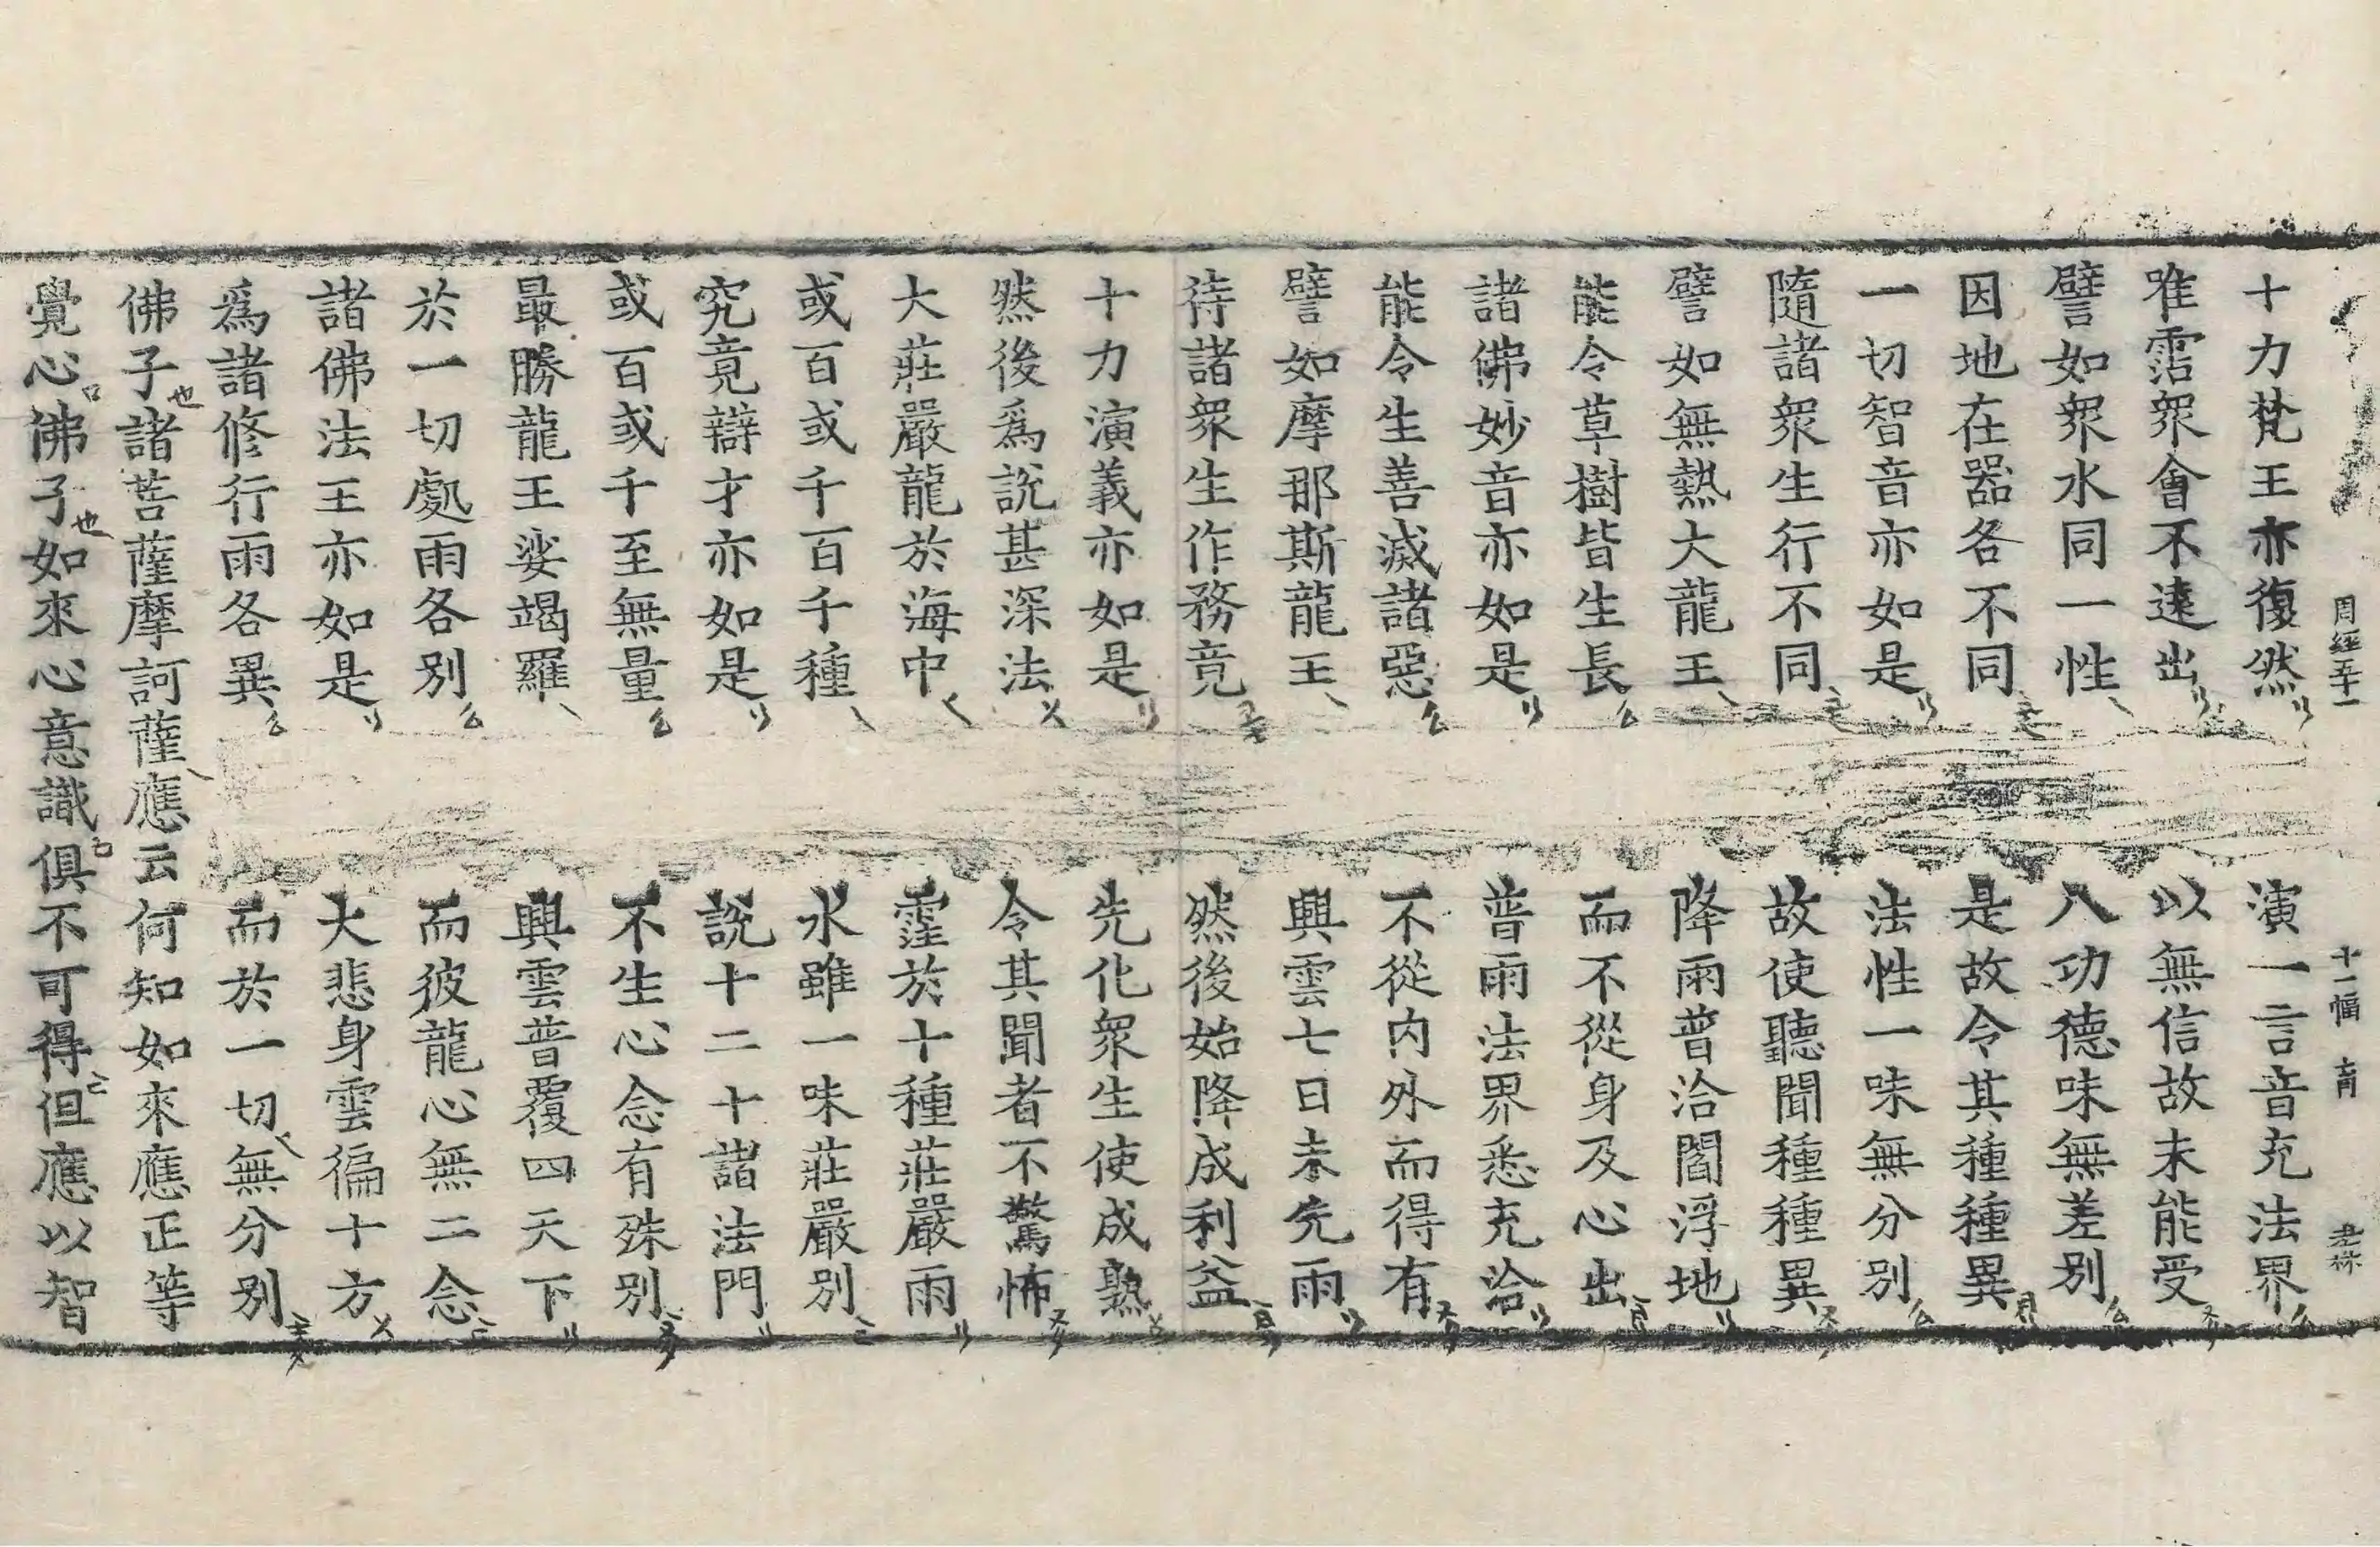 周經五十一 十一幅 育
十力梵王亦復然 演一言音充法界
唯霑衆會不遠出 以無信故未能受
譬如衆水同一性 八功德味無差別
因地在器各不同 是故令其種種異
一切智音亦如是 法性一味無分別
隨諸衆生行不同 故使聽聞種種異
譬如無熱大龍王 降雨普洽閻浮地
能令草樹皆生長 而不從身及心出
諸佛妙音亦如是 普雨法界悉充洽
能令生善滅諸惡 不從內外而得有
譬如摩那斯龍王 興雲七日未先雨
待諸衆生作務竟 然後始降成利益
十力演義亦如是 先化衆生使成熟
然後爲說甚深法 令其聞者不驚怖
大莊嚴龍於海中 霔於十種莊嚴雨
或百或千百千種 水雖一味莊嚴別
究竟辯才亦如是 說十二十諸法門
或百或千至無量 不生心念有殊別
最勝龍王娑竭羅 興雲普覆四天下
於一切處雨各別 而彼龍心無二念
諸佛法王亦如是 大悲身雲徧十方
爲諸修行雨各異 而於一切無分別
佛子也諸菩薩摩訶薩應云何知如來應正等
覺心口佛子也如來心意識俱不可得但應以智